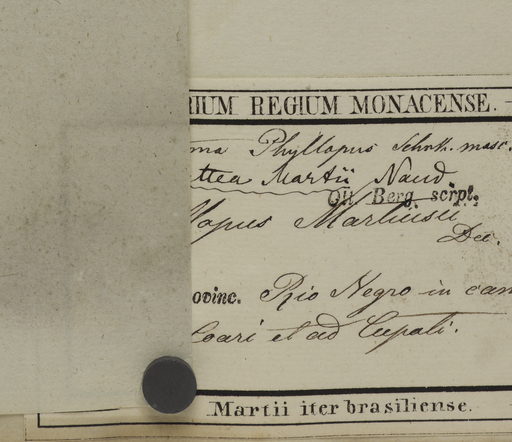 RIUM REGIUM MONACENSE.
ma Phyllopus Schrk. masc.
ttea Martii Naud
Ott Berg script.
lopus Martiusii
Dec.
ovinc. Rio Negro in cam
Coari et ad Cupati.
Martii iter brasiliense.